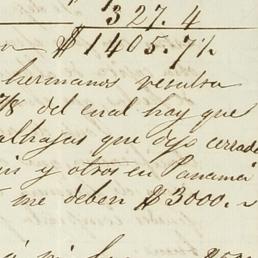 327. 4
$1405.7½
hermanos resulta
78 del cual hay que
alhajas que dejo cerrado
is y otros en Panamá
me deben $3000.